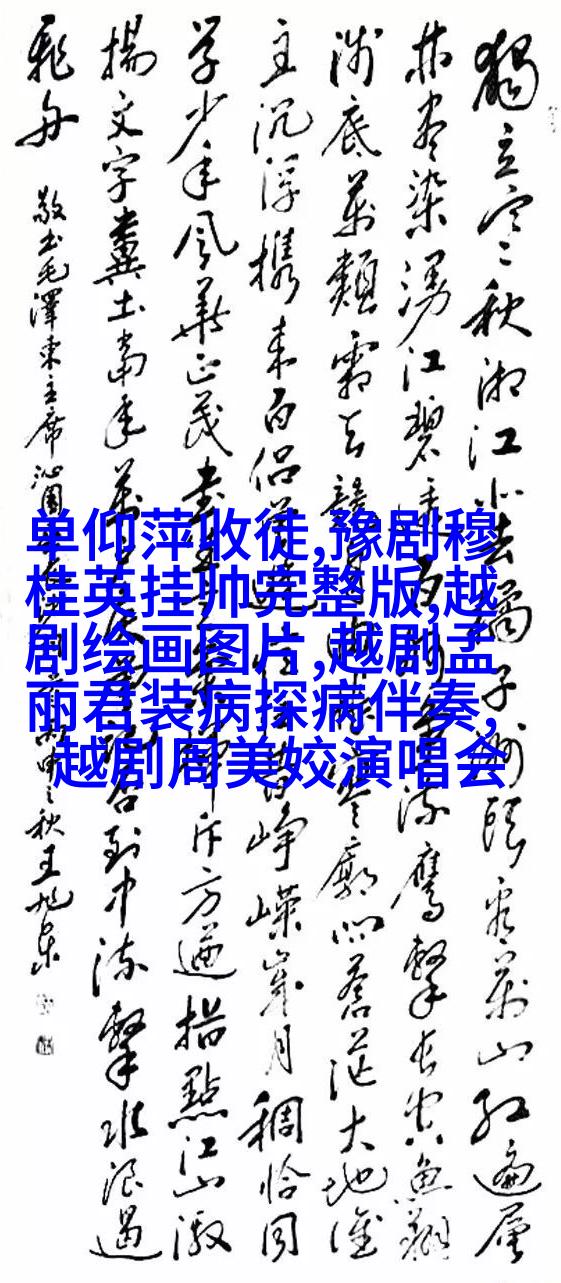 单仰萍收徒,豫剧穆
桂英挂帅完整版,越
剧绘画图片,越剧孟
丽君装病探病伴奏,
越剧周美姣演唱会
獨立寒秋湘江北去橘子洲頭看萬山红遍層
林盡染漫江碧透百舸争流鷹擊长空魚翔
浅底萬類霜天競自由寥廓问蒼茫大地谁
主沉浮携来百侣曾遊憶往昔峥嵘岁月稠恰同
学少年风华正茂書生意斥方遒指點江山激
揚文字糞土当年萬户侯曾记否到中流擊水浪遏
飞舟
敬书毛澤東主席沁園申之秋王旭東